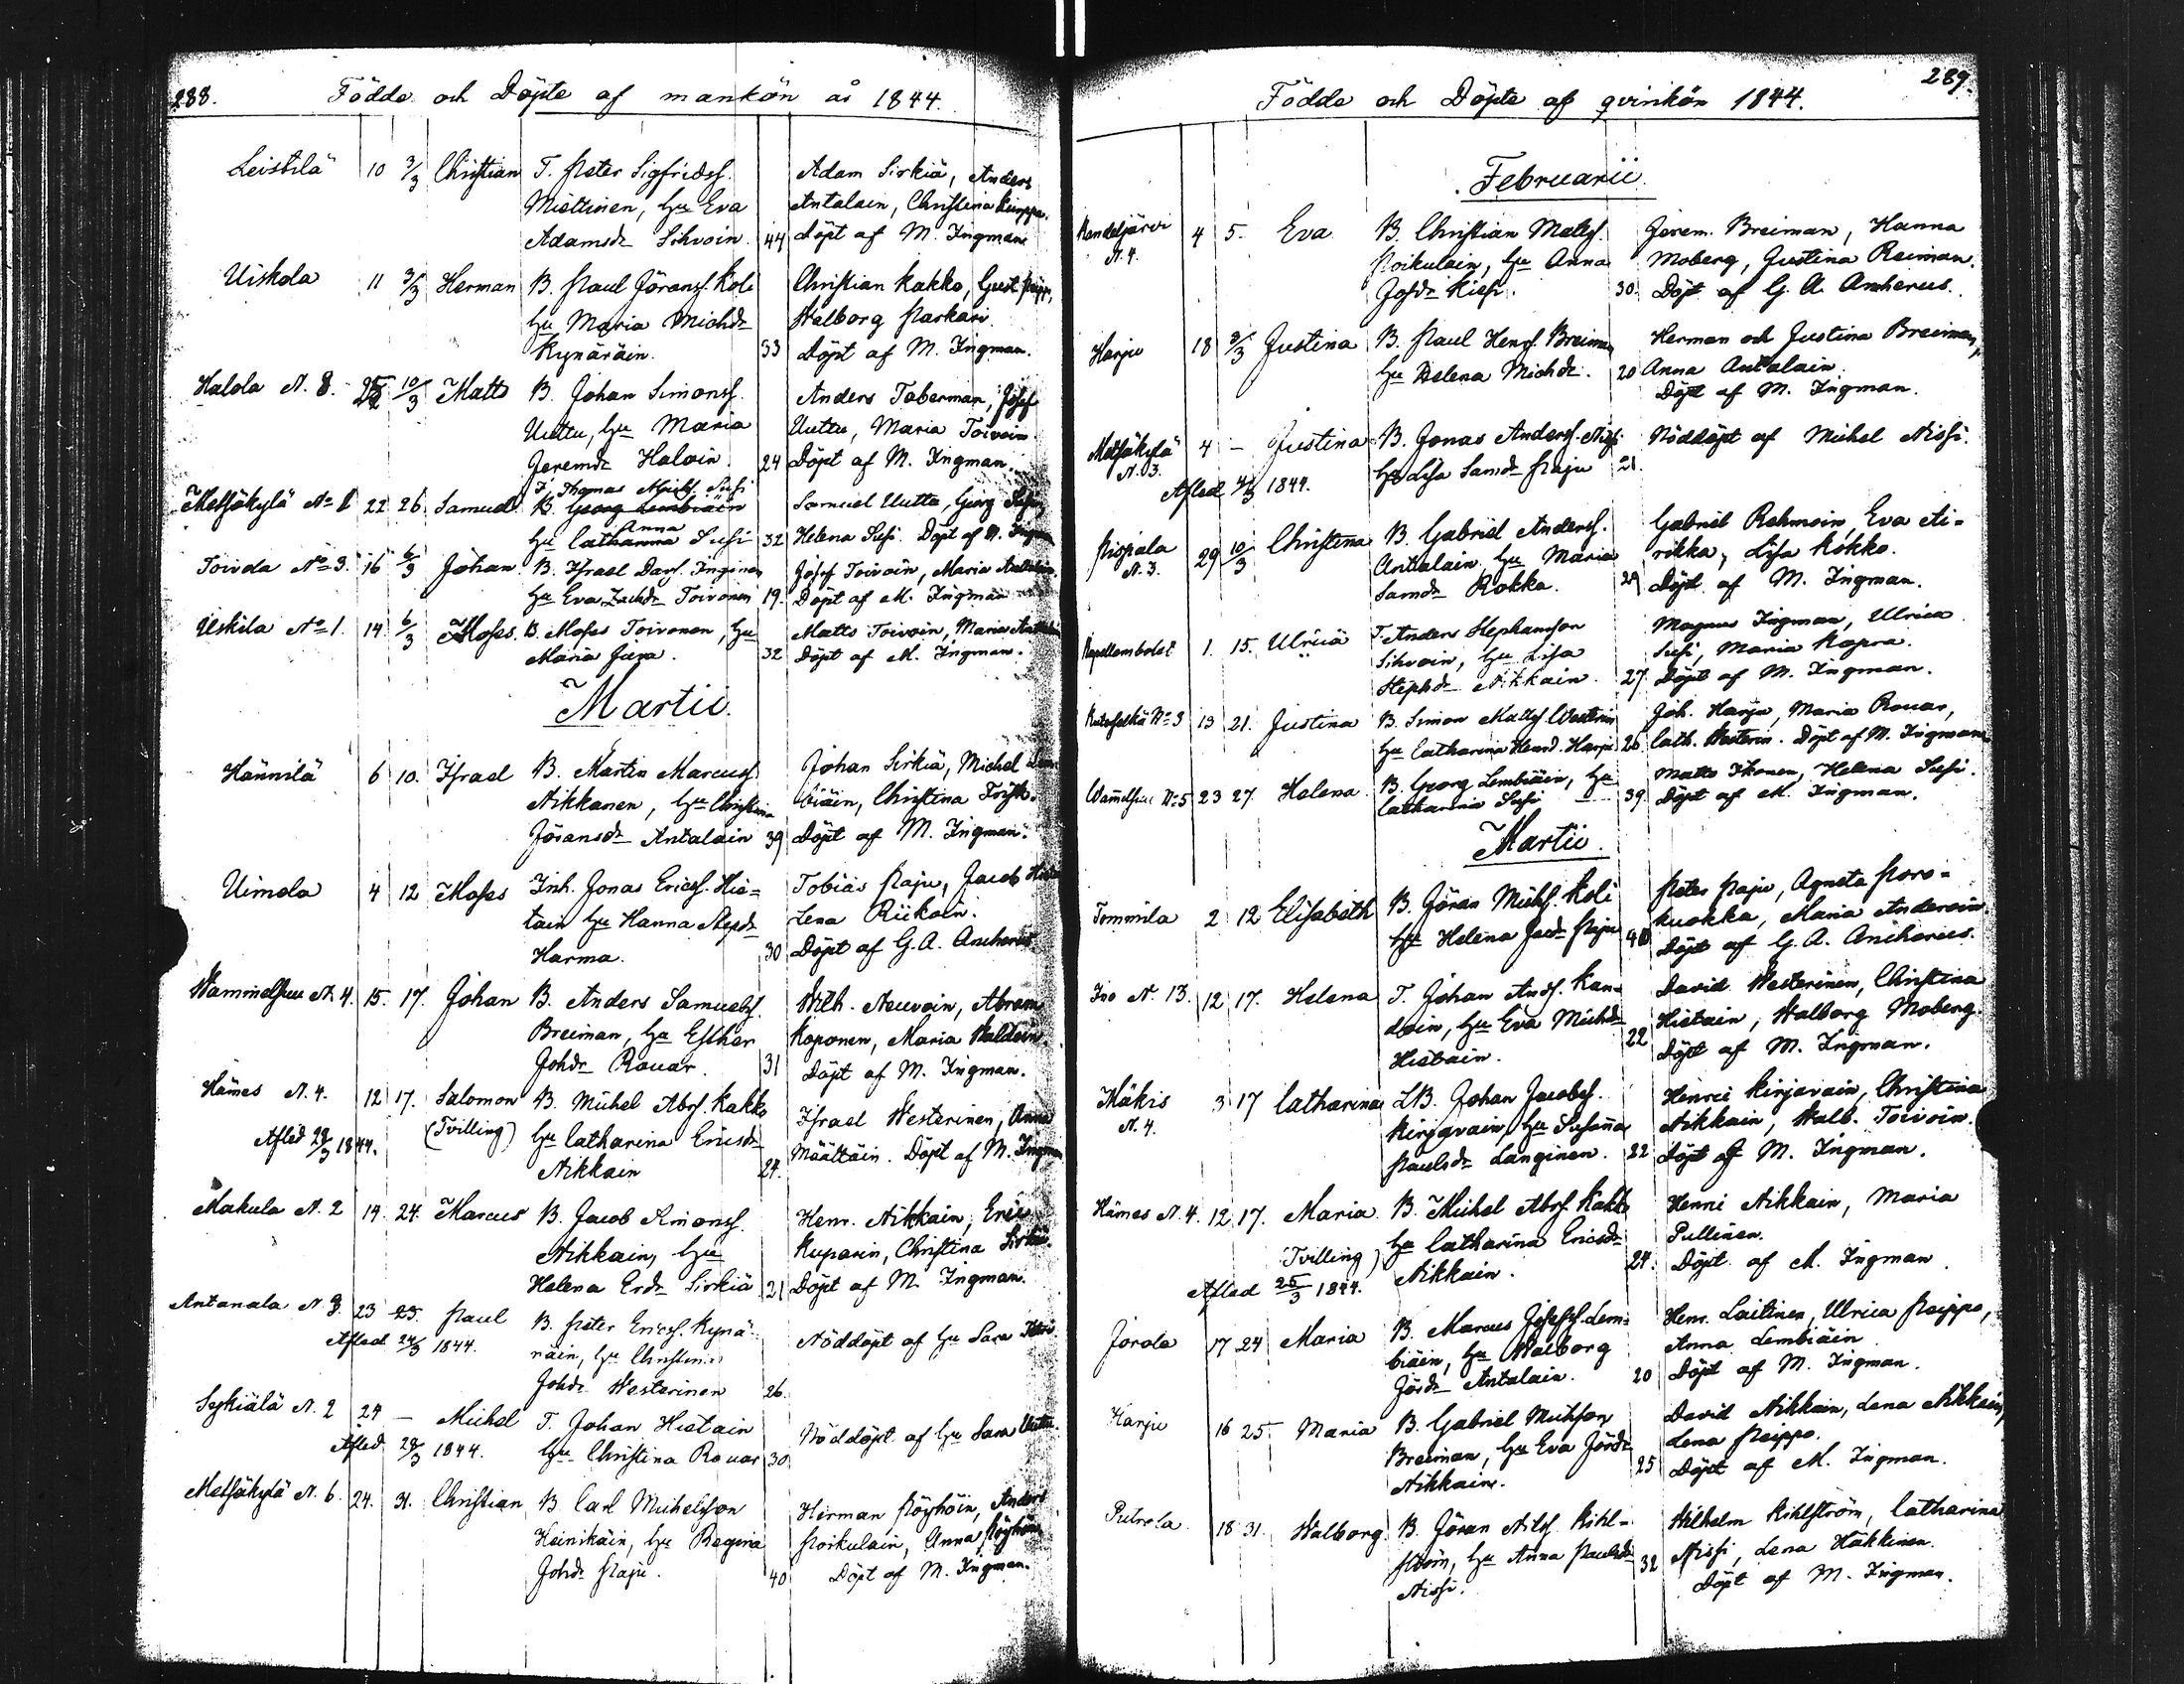 288.
Födde och Döpte af mankön år 1844.
Leistilä 10 3/3 Christian T. Peter Sigfridss. Adam Sirkiä, Anders
Miettinen, hu Eva Antalain, Christina
Adamsdr Sihvoin. 44 Döpt af M. Ingman
Uiskola 11 3/3 Herman B. Paul Göranss. Koli Christian Kakko, Gust
hu Maria Michdr Walborg Parkari.
Kynäräin. 33 Döpt af M. Ingman.
Halola N. 8. 10/3 Matts B. Johan Simonss. Anders Taberman, Josef
Uuttu, hu Maria Uuttu, Maria Toivoin
Jeremdr Haloin. 24 Döpt af M. Ingman.
T. Thomas Michss. Susi
Metsäkylä No 1 22 26. Samuel B. Georg Lembiäin Samuel Uuttu, Georg Susi,
hu Catharina Anna Susi 32 Helena Susi. Döpt af M. Ingman
Toivola No 3. 16 6/3 Johan. B. Israel Davs. Inginen Josef Toivoin, Maria
hu Eva Zachdr Toivonen 19. Döpt af M. Ingman
Uskila No 1. 14 6/3 Moses. B. Moses Toivonen, hu Matts Toivoin, Maria
Maria Juva. 32 Döpt af M. Ingman.
Martii.
Hännilä 6 10. Israel B. Martin Marcuss. Johan Sirkiä, Michel Lem-
Nikkanen, hu Christina biäin, Christina
Göransdr Antalain 39 Döpt af M. Ingman.
Uimola 4 12 Moses Inh. Jonas Ericss. Hie= Tobias Paju, Jacob
tain hu Hanna Stepdr Lena Riikoin.
Harma. 30 Döpt af G. A. Ancherus
Wammelsuu N. 4. 15. 17. Johan B. Anders Samuelss. Wilh. Neuvoin, Abram
Breiman, hu Esther Koponen, Maria
Johdr Rouar. 31 Döpt af M. Ingman.
Hämes N. 4. 12 17. Salomon B. Michel Abrs. Kakko Israel Westerinen, Anna
Afled 28/3 1844. (Tvilling) hu Catharina Ericsdr Määttäin. Döpt af M. Ingman
Nikkain 24.
Makula N. 2 14. 24. Marcus B. Jacob Simonss. Henr. Nikkain, Eric
Nikkain, hu Kuparin, Christina Sirkiä.
Helena Erdr Sirkiä 21 Döpt af M. Ingman.
Antanala N. 3. 23 23. Paul B. Peter Ericss. Kynä= Nöddöpt af hu Sara
Afled 24/3 1844. räin, hu Christina
Johdr Westerinen 26.
Sykiälä N. 2 24 — Michel T. Johan Hietain Nöddöpt af hu Sara
Afled 28/3 1844. hu Christina Rouar 30
Metsäkylä N. 6. 24. 31. Christian B. Carl Michelsson Herman Pöyhöin, Anders
Heinikäin, hu Regina Poikulain, Anna Pöyhöin
Johdr Paju. 40 Döpt af M. Ingman.
289.
Födde och Döpte af qvinkön 1844.
Februarii.
Kandeljärvi 4 5. Eva B. Christian Matts. Jerem. Breiman, Hanna
N. 4. Poikulain, hu Anna Moberg, Justina Reiman.
Josdr Kiesi. 30. Döpt af G. A. Ancherus.
Harju 18 3/3 Justina B. Paul Hens. Breiman Herman och Justina Breiman,
hu Helena Michdr. 20 Anna Antalain.
Döpt af M. Ingman.
Metsäkylä 4 — Justina B. Jonas Anderss. Nissi Nöddöpt af Michel Nissi.
N. 3. hu Lisa Samdr Paju 21.
Afled 4/3 1844.
Pispala 29 10/3 Christina B. Gabriel Anderss. Gabriel Rahmoin, Eva Ai=
N. 3. Antalain, hu Maria rikka, Lisa Kokko.
Samdr Rokka. 29 Döpt af M. Ingman.
Kapellembolet 1. 15. Ulrica T. Anders Stephansson Magnus Ingman, Ulrica
Sihvoin, hu Lisa Susi, Maria Kapra.
Stephdr Nikkain. 27 Döpt af M. Ingman.
No 3 13 21. Justina B. Simon Matts. Westerin Joh. Harju, Maria Rouar,
hu Catharina Henrd. Harju 26 Cath. Westerin. Döpt af M. Ingman
Wammelsuu No 5 23 27. Helena. B. Georg Lembiäin, hu Matts Ikonen, Helena Susi.
Catharina Susi 39 Döpt af M. Ingman.
Martii.
Tommila 2 12 Elisabeth B. Göran Michs. Koli Peter Paju, Agneta Poro=
hu Helena Jacdr Paju 40 kuokka, Maria Anderoin
Döpt af G. A. Ancherus.
Ino N. 13. 12 17. Helena T. Johan Ands. Kan= David Westerinen, Christina
doin, hu Eva Michdr Hietain, Walborg Moberg.
Hietain. 22 Döpt af M. Ingman.
Mäkis 3 17 Catharina LB. Johan Jacobss. Henric Kirjavain, Christina
N. 4. Kirjavain, hu Susanna Nikkain, Walb. Toivoin.
Paulsdr Langinen. 22 Döpt af M. Ingman.
Hämes N. 4. 12 17. Maria B. Michel Abrs. Kakko Henric Nikkain, Maria
(Tvilling) hu Catharina Ericsdr Pullinen.
Afled 25/3 1844. Nikkain. 24. Döpt af M. Ingman
Jorola 17 24 Maria B. Marcus Josefss. Lem= Henr. Laitinen, Ulrica Peippo,
biäin, hu Walborg Anna Lembiäin
Jördr Antalain. 20 Döpt af M. Ingman.
Harju 16 25 Maria B. Gabriel Michsson David Nikkain, Lena Nikkain,
Breiman, hu Eva Jördr Lena Peippo.
Nikkain. 25 Döpt af M. Ingman.
Putrola 18 31. Walborg. B. Göran Nilss. Kihl= Wilhelm Kihlström, Catharina
ström, hu Anna Paulsdr Nissi, Lena Häkkinen.
Nissi. 32 Döpt af M. Ingman.